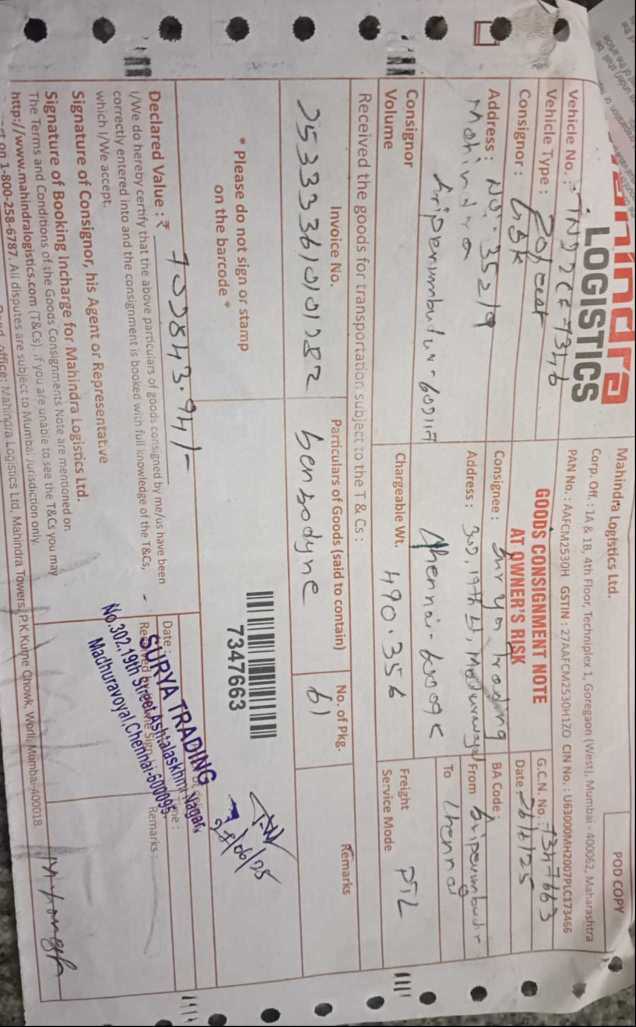 POD COPY
Mahindra Logistics Ltd.
LOGISTICS
Corp. Off. : 1A & 1B, 4th Floor, Techniplex 1, Goregaon (West), Mumbai - 400062, Maharashtra
PAN No. : AAFCM2530H GSTIN : 27AAFCM2530H1ZO CIN No. : U63000MH2007PLC173466
Vehicle No. :
Vehicle Type :
GOODS CONSIGNMENT NOTE
AT OWNER'S RISK
G.C.N. No. : 7347663
Date
Consignor : GSK
Consignee : Surya trading
BA Code :
Address : No. 352/9
Mahindra
Sriperumbudur - 602117
Address : 302, 19th St, Maduravoyal
Chennai - 600095
From Sriperumbudur
To Chennai
Consignor
Volume
Chargeable Wt. 490.356
Freight
Service Mode PTL
Received the goods for transportation subject to the T & Cs :
Invoice No.
Particulars of Goods (said to contain)
No. of Pkg.
Remarks
Sensodyne
61
* Please do not sign or stamp
on the barcode *
7347663
28/06/25
Declared Value : ₹ 702843.94/-
I/We do hereby certify that the above particulars of goods consigned by me/us have been
correctly entered into and the consignment is booked with full knowledge of the T&Cs,
which I/We accept.
Date :
Remarks
SURYA TRADING
No.302, 19th Street, Ashtalaskhmi Nagar,
Maduravoyal, Chennai-600095.
Signature of Consignor, his Agent or Representative
Signature of Booking Incharge for Mahindra Logistics Ltd.
The Terms and Conditions of the Goods Consignments Note are mentioned on
http://www.mahindralogistics.com (T&Cs), if you are unable to see the T&Cs you may
on 1-800-258-6787. All disputes are subject to Mumbai Jurisdiction only.
office: Mahindra Logistics Ltd, Mahindra Towers, P.K.Kurne Chowk, Worli, Mumbai-400018